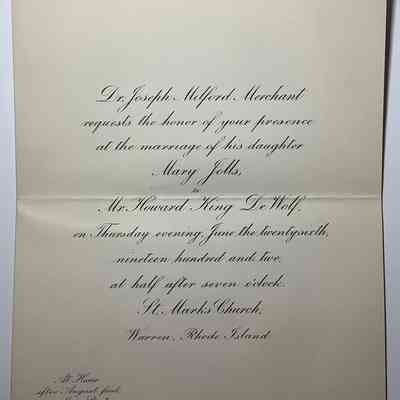 Dr. Joseph Milford Merchant
requests the honor of your presence
at the marriage of his daughter
Mary Jolls,
to
Mr. Howard King De Wolf,
on Thursday evening, June the twenty-sixth,
nineteen hundred and two,
at half after seven o'clock.
St. Mark's Church,
Warren, Rhode Island
At Home
after August first